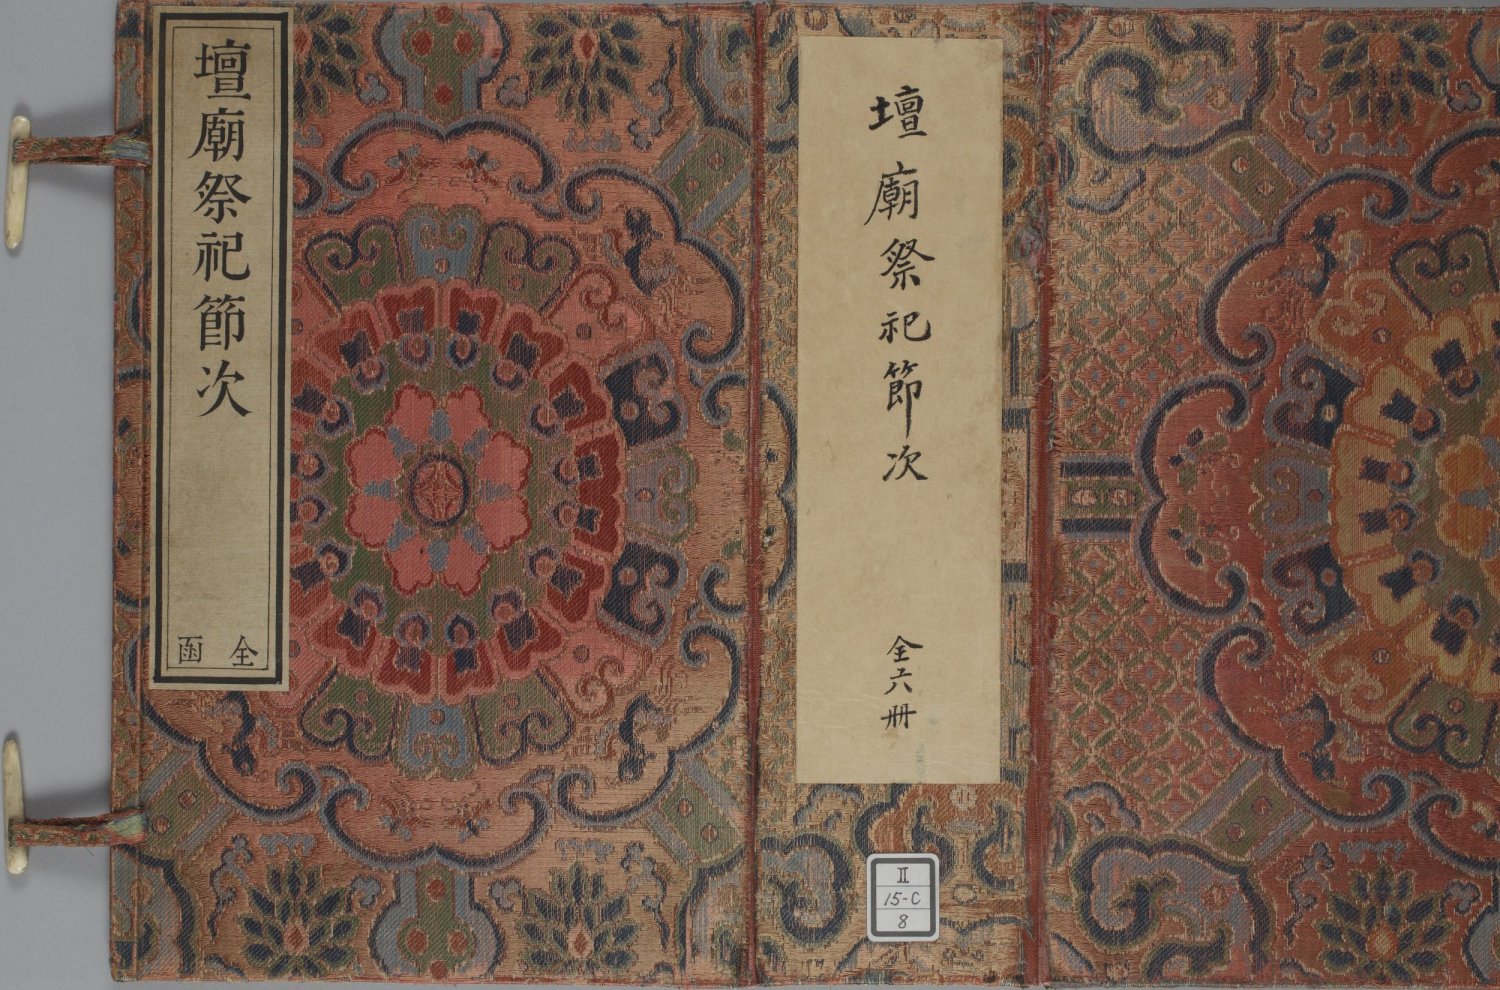 壇廟祭祀節次
全函
壇廟祭祀節次
全六冊
II
15-C
8